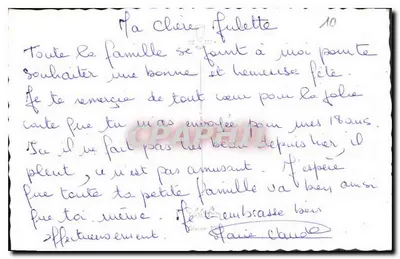 10
Ma chère Julette
Toute la famille se joint à moi pour te
souhaiter une bonne et heureuse fête.
Je te remercie de tout cœur pour la jolie
carte que tu m'as envoyée pour mes 18 ans.
Ici il ne fait pas très beau depuis hier, il
pleut, ce n'est pas amusant. J'espère
que toute ta petite famille va bien ainsi
que toi même. Je t'embrasse bien
affectueusement. Marie Claude
CPAPHIL